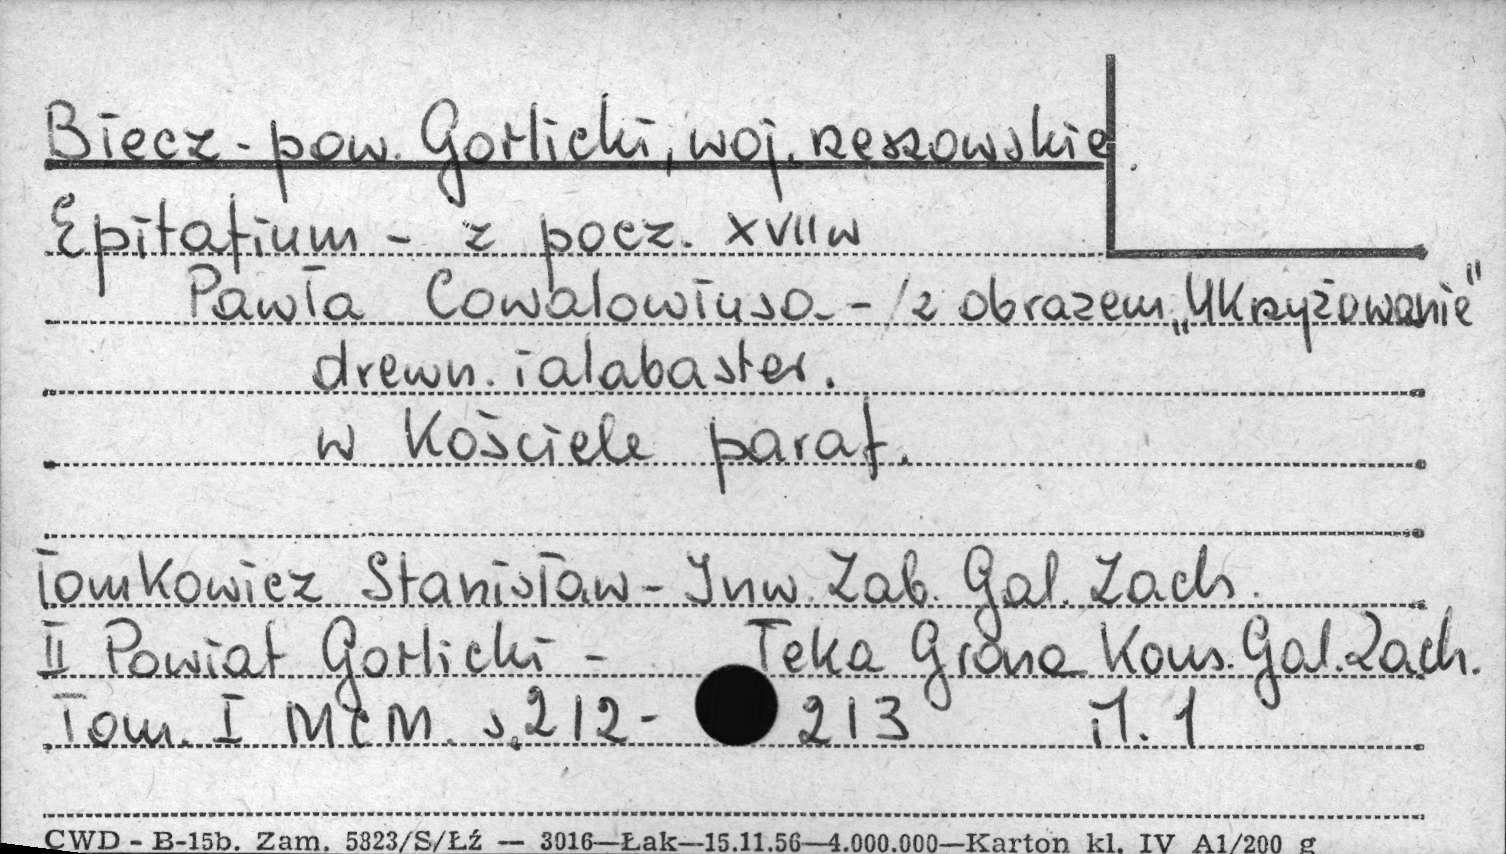 Biecz - pow. Gorlicki, woj. rzeszowskie.
Epitafium - z pocz. XVII w
Pawła Cowalowiusa - /z obrazem „Ukrzyżowanie"
drewn. i alabaster.
w Kościele paraf.
Tomkowicz Stanisław - Inw. Zab. Gal. Zach.
II Powiat Gorlicki - Teka Grona Kons. Gal. Zach.
Tom. I MCM. s. 212 - 213 il. 1
CWD - B-15b. Zam. 5823/S/Łź — 3016—Łak—15.11.56—4.000.000—Karton kl. IV A1/200 g